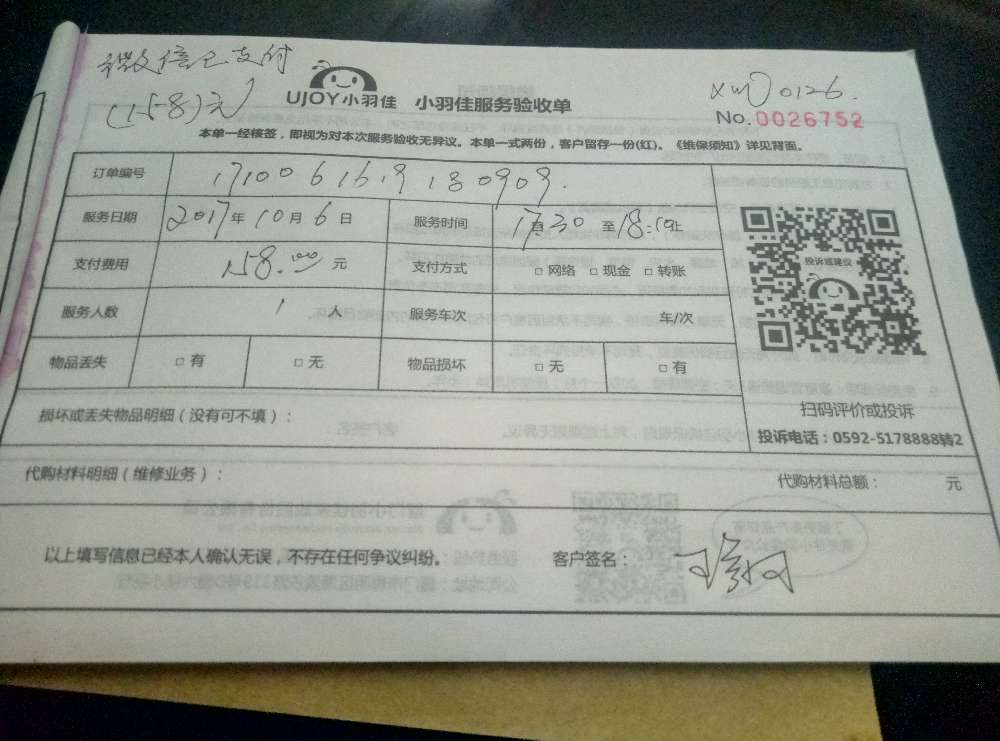 微信已支付
(158)元
UJOY小羽佳 小羽佳服务验收单
XWJ0126.
No.0026752
本单一经核签，即视为对本次服务验收无异议。本单一式两份，客户留存一份(红)。《维保须知》详见背面。
订单编号 1710061619180909.
服务日期 2017年10月6日 服务时间 17:30 至18:00止
支付费用 158.00元 支付方式 □网络 □现金 □转账
服务人数 1人 服务车次 车/次
物品丢失 □有 □无 物品损坏 □无 □有
投诉或建议
扫码评价或投诉
投诉电话：0592-5178888转2
损坏或丢失物品明细（没有可不填）：
代购材料明细（维修业务）：
代购材料总额： 元
以上填写信息已经本人确认无误，不存在任何争议纠纷。 客户签名：